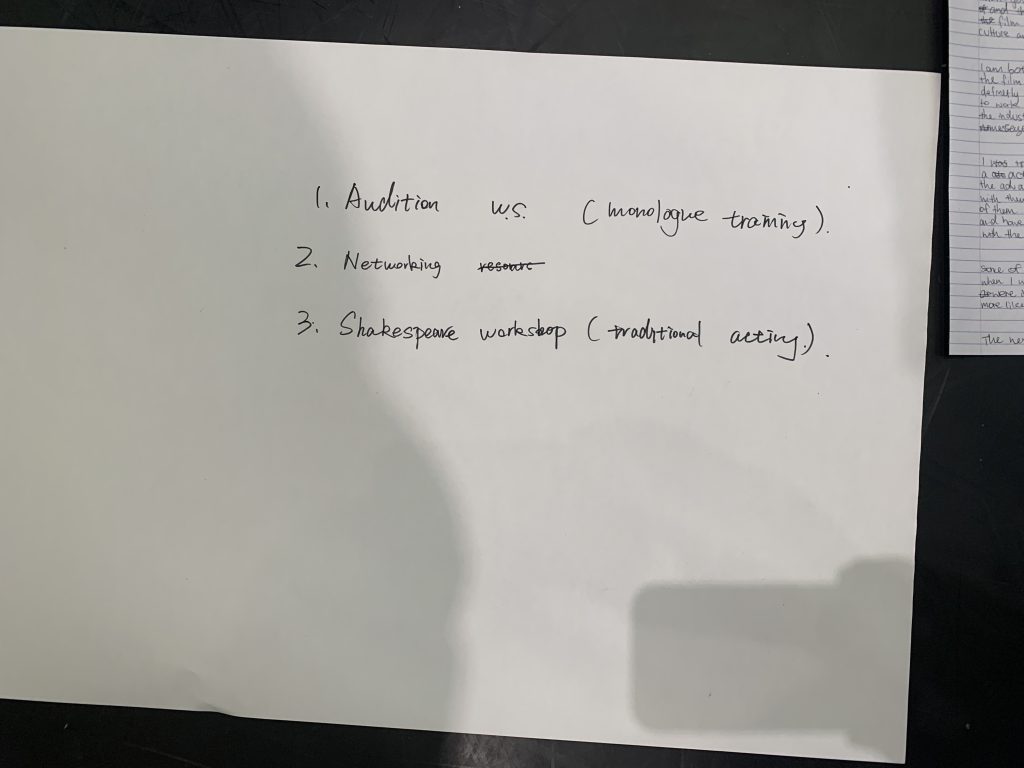 1. Audition w.s. (monologue training).
2. Networking resourc
3. Shakespeare workshop (traditional acting.).
and
film
culture
I am
the film
definitely
to work
the
I was
a act
the
with
of them
and have
with the
some of
when I
were
more
The